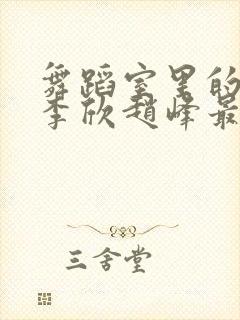 舞蹈室里的
李欣赵峰最
三舍堂